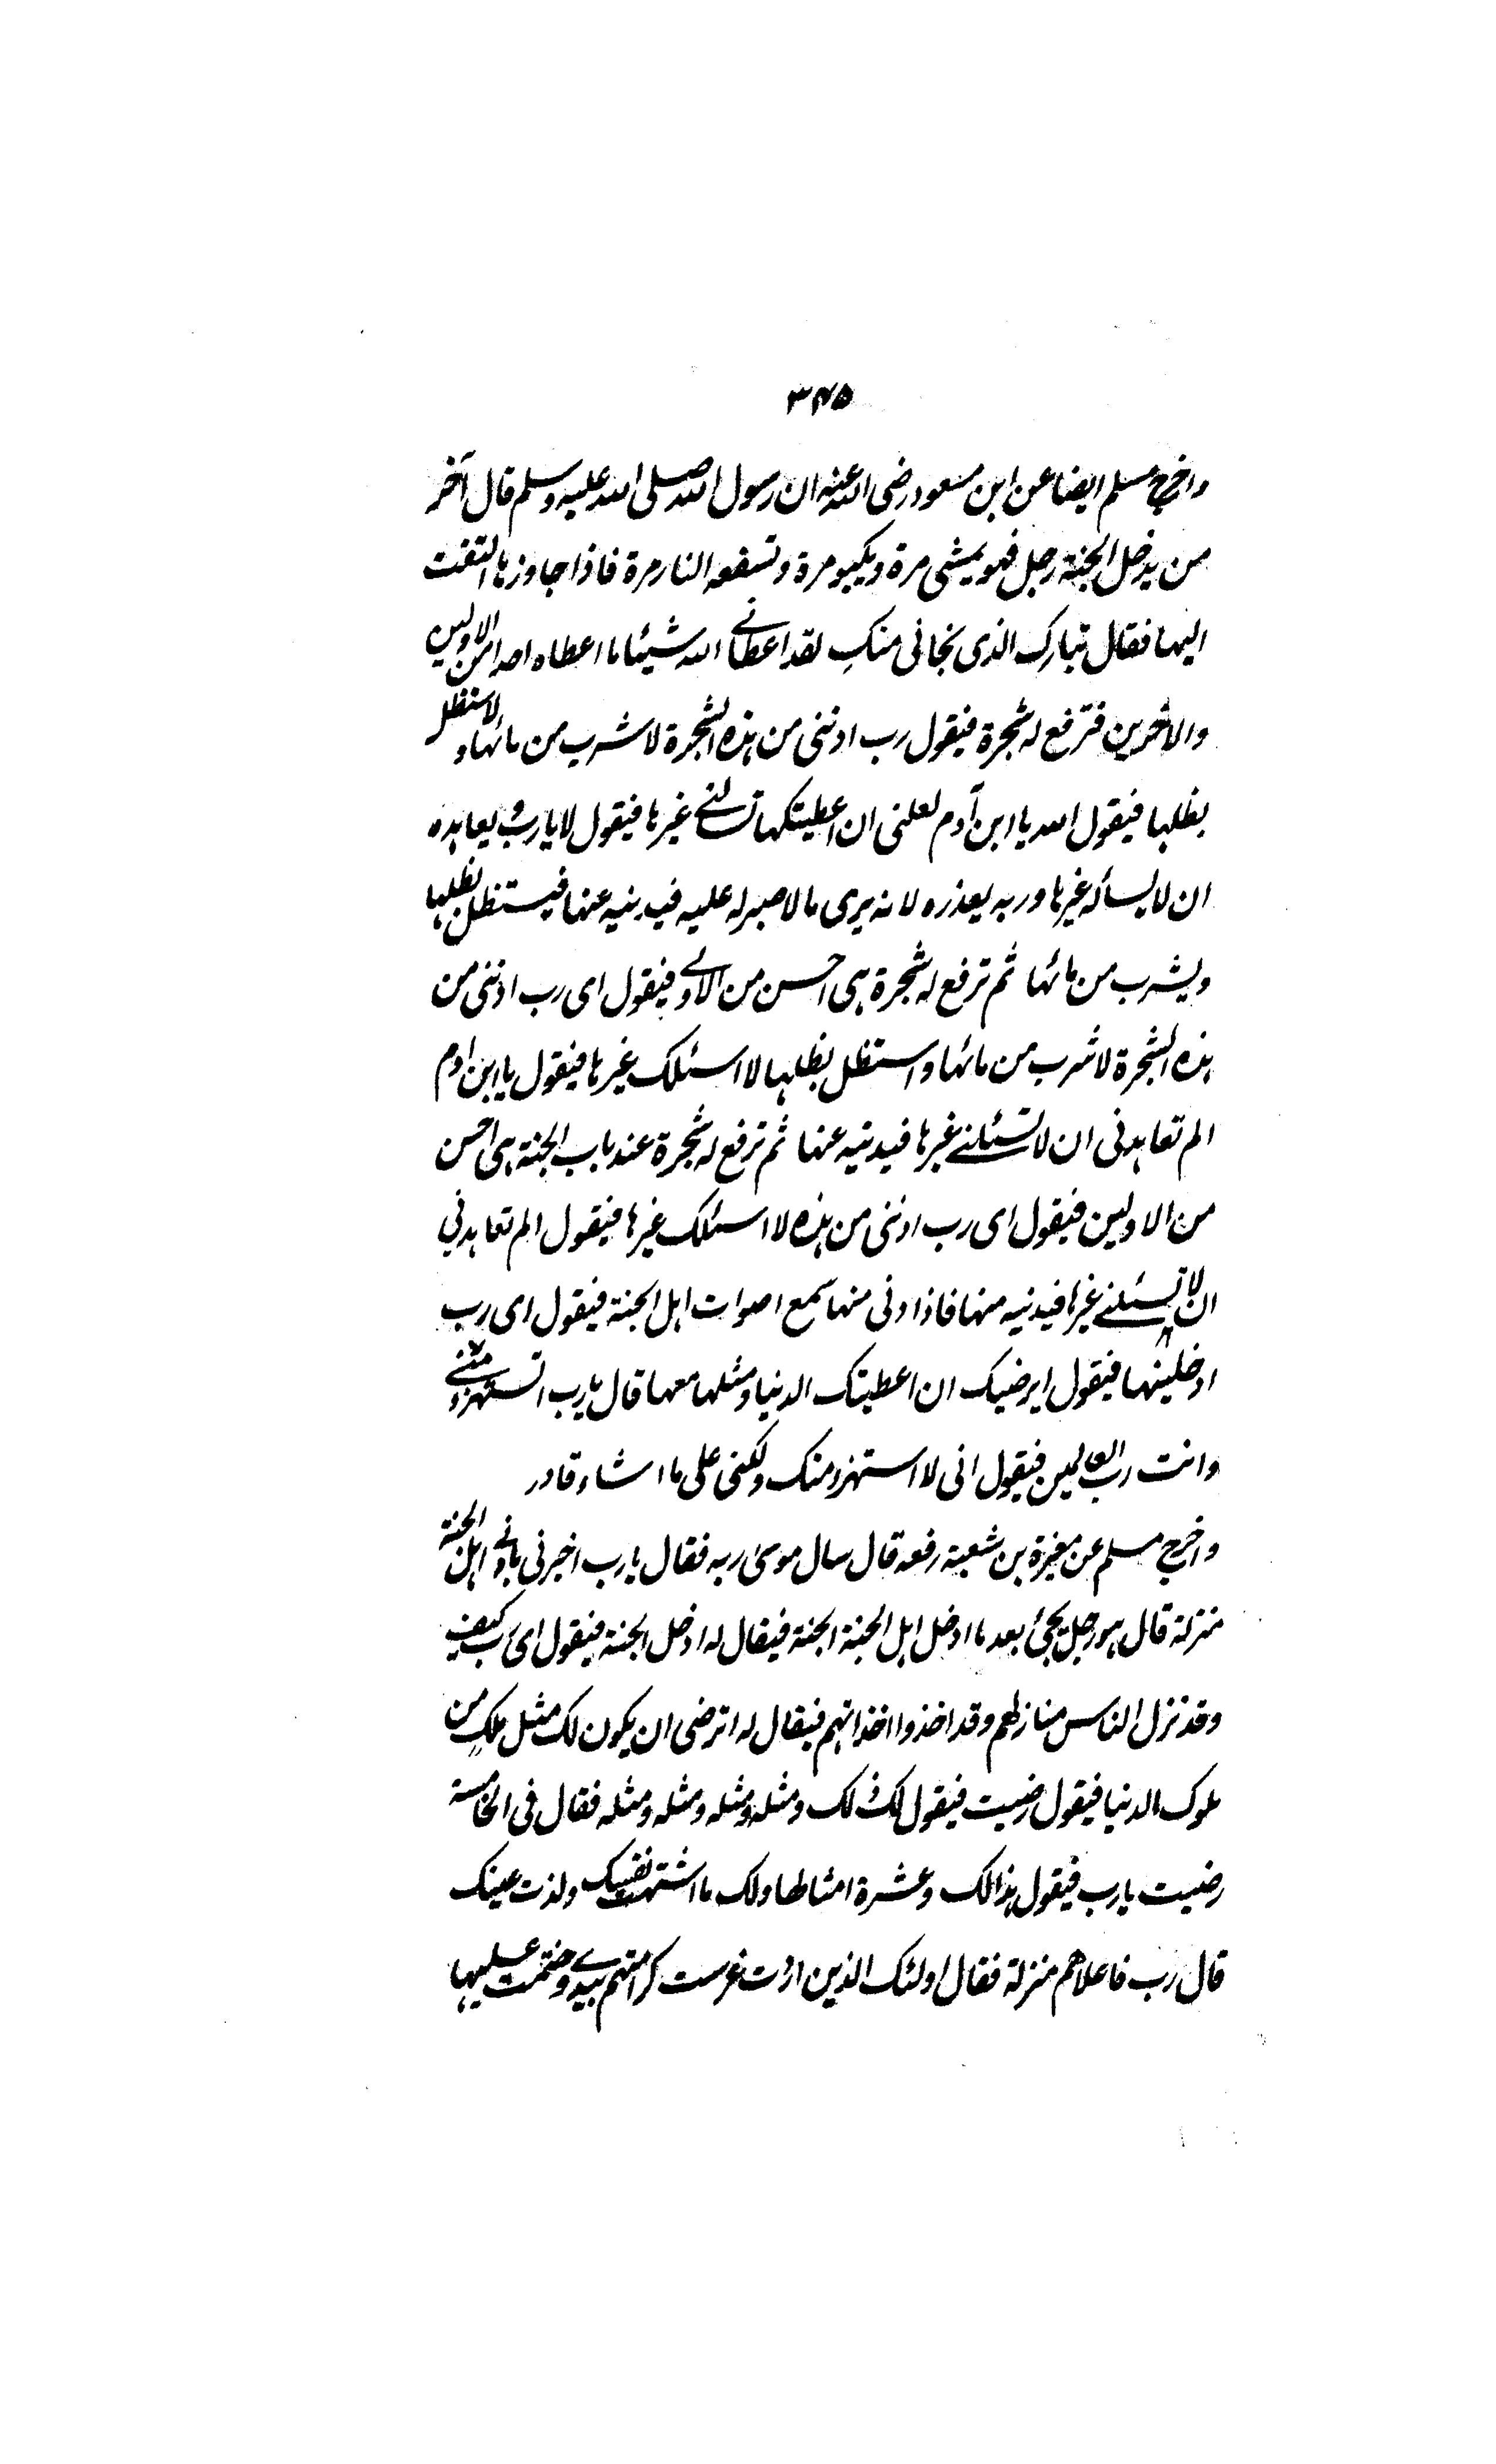 ۳۴۵
واخرج مسلم ايضا عن ابن مسعود رضى الله عنه ان رسول الله صلى الله عليه وسلم قال آخر
من يدخل الجنة رجل فهو يمشى مرة ويكبو مرة وتسفعه النار مرة فاذا جاوزها التفت
اليها فقال تبارك الذى نجانى منك لقد اعطانى الله شيئا ما اعطاه احدا من الاولين
والاخرين فترفع له شجرة فيقول رب ادننى من هذه الشجرة لاشرب من مائها ولاستظل
بظلها فيقول الله يا ابن آدم لعلنى ان اعطيتكها تسالنى غيرها فيقول لا يا رب ويعاهده
ان لا يسأله غيرها وربه يعذره لانه يرى ما لا صبر له عليه فيدنيه عنها فيستظل بظلها
ويشرب من مائها ثم ترفع له شجرة هى احسن من الاولى فيقول اى رب ادننى من
هذه الشجرة لاشرب من مائها واستظل بظلها لا اسئلك غيرها فيقول يا ابن ادم
الم تعاهدنى ان لا تسئلنى غيرها فيدنيه عنها ثم ترفع له شجرة عند باب الجنة هى احسن
من الاولين فيقول اى رب ادننى من هذه لا اسئلك غيرها فيقول الم تعاهدنى
ان لا تسئلنى غيرها فيدنيه منها فاذا دنى منها سمع اصوات اهل الجنة فيقول اى رب
ادخلينها فيقول ايرضيك ان اعطيتك الدنيا ومثلها معها قال يا رب اتستهزؤ منى
وانت رب العالمين فيقول انى لا استهزء منك ولكنى على ما اشاء قادر
واخرج مسلم عن مغيرة بن شعبة رفعه قال سال موسى ربه فقال يا رب اخبرنى بادنى اهل الجنة
منزلة قال هو رجل يجئ بعد ما ادخل اهل الجنة الجنة فيقال له ادخل الجنة فيقول اى رب كيف
وقد نزل الناس منازلهم وقد اخذوا اخذاتهم فيقال له اترضى ان يكون لك مثل ملك من
ملوك الدنيا فيقول رضيت فيقول لك ذلك ومثله ومثله ومثله ومثله فقال فى الخامسة
رضيت يا رب فيقول هذا لك وعشرة امثالها ولك ما اشتهت نفسك ولذت عينك
قال رب فاعلاهم منزلة فقال اولئك الذين اردت غرست كرامتهم بيدى وختمت عليها